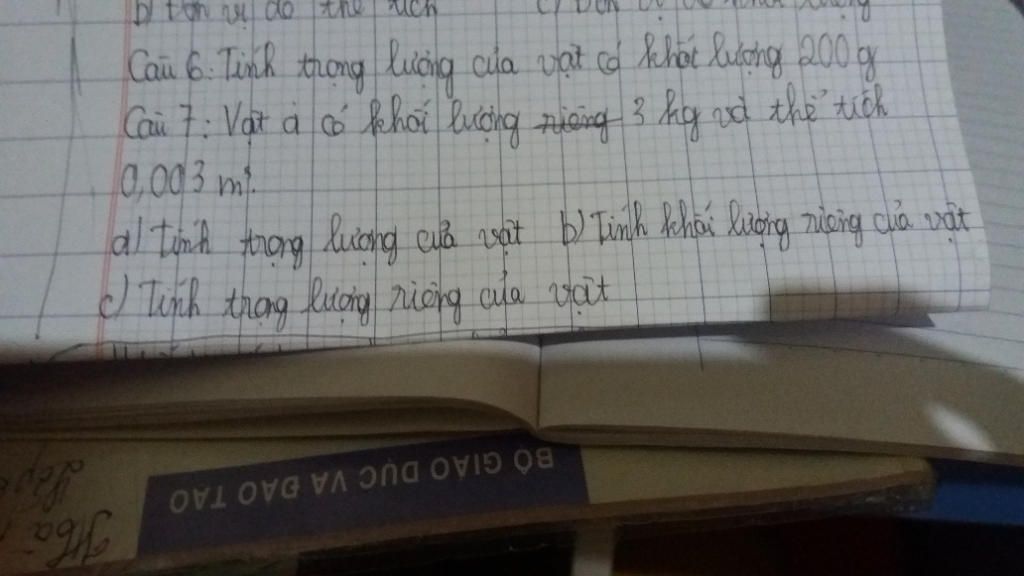 b) Đơn vị đo thể tích c) Đơn vị đo khối lượng
Câu 6: Tính trọng lượng của vật có khối lượng 200g
Câu 7: Vật à có khối lượng riêng 3 kg và thể tích
0,003 m³.
a) Tính trọng lượng của vật b) Tính khối lượng riêng của vật
c) Tính trọng lượng riêng của vật
BỘ GIÁO DỤC VÀ ĐÀO TẠO